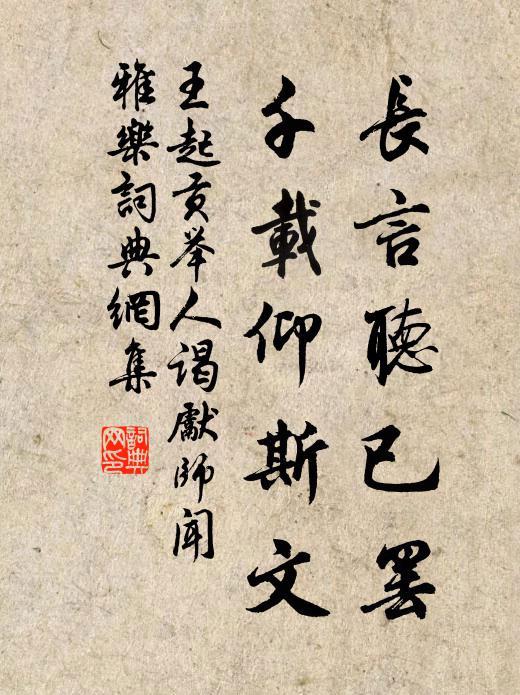 長言聽已罷
千載仰斯文
王起貢举人謁獻師聞
雅樂詞典網集
詞典
网印